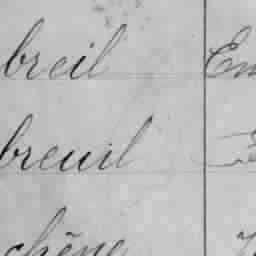 breil Em
breuil
chêne